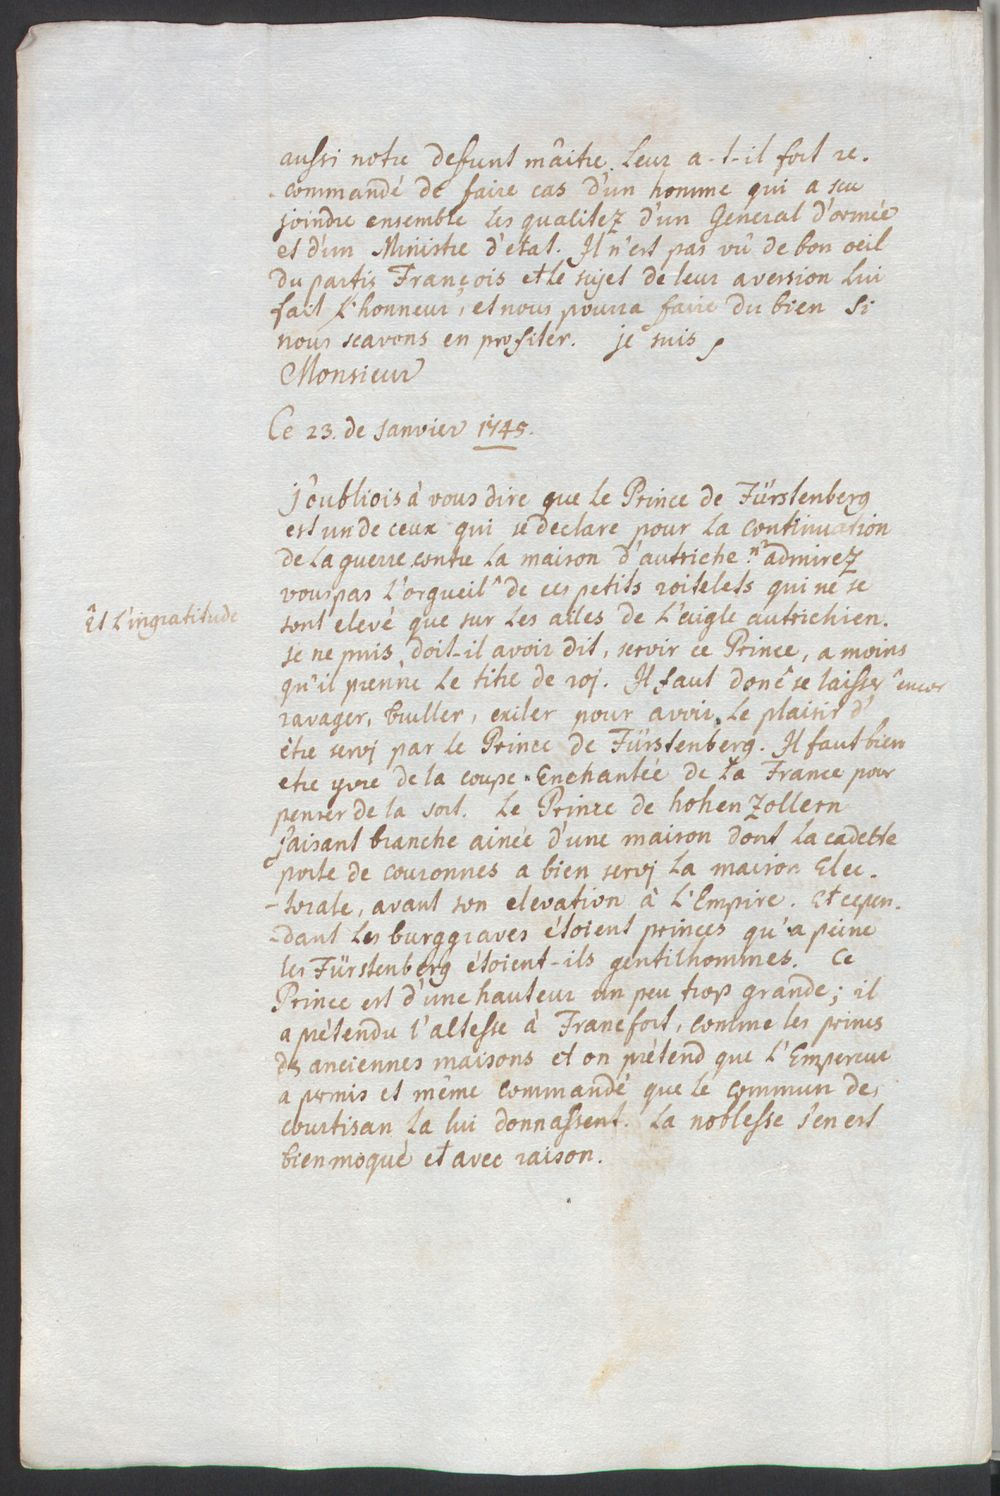 aussi notre defunt mâitre. Leur a-t-il fort re-
-commandé de faire cas d'un homme qui a sceu
joindre ensemble les qualitez d'un General d'armée
et d'un Ministre d'état. Il n'est pas vû de bon oeil
du partis François et le sujet de leur aversion lui
fait L'honneur, et nous pourra faire du bien Si
nous scavons en profiter. je suis,
Monsieur
Ce 23. de Janvier 1745.
j'oubliois à vous dire que le Prince de Fürstenberg
est un de ceux qui se declare pour la continuation
de la guerre contre la maison d'autriche. n'admirez
vous pas L'orgueil ^ de ces petits roitelets qui ne se
Et L'ingratitude
sont elevé que sur les ailes de L'aigle autrichien.
Je ne puis, doit-il avoir dit, servir ce Prince, a moins
qu'il prenne le titre de roj. Il faut donc se laisser encor
ravager, bruller, exiler pour avoir le plaisir d'
être servj par le Prince de Fürstenberg. Il faut bien
etre yvre de la coupe Enchantée de La France pour
penser de la sort. Le Prince de hohenzollern
faisant branche ainée d'une maison dont la cadette
porte de couronnes a bien servj la maison Elec-
-torale, avant son elevation à L'Empire. Et cepen-
-dant les burggraves étoient princes qu'a peine
les Fürstenberg étoient-ils gentilhommes. Ce
Prince est d'une hauteur un peu trop grande; il
a prétendu l'altesse à Francfort, comme les princes
des anciennes maisons et on prétend que L'Empereur
a permis et même commandé que le commun des
courtisan la lui donnassent. La noblesse s'en est
bien moqué et avec raison.